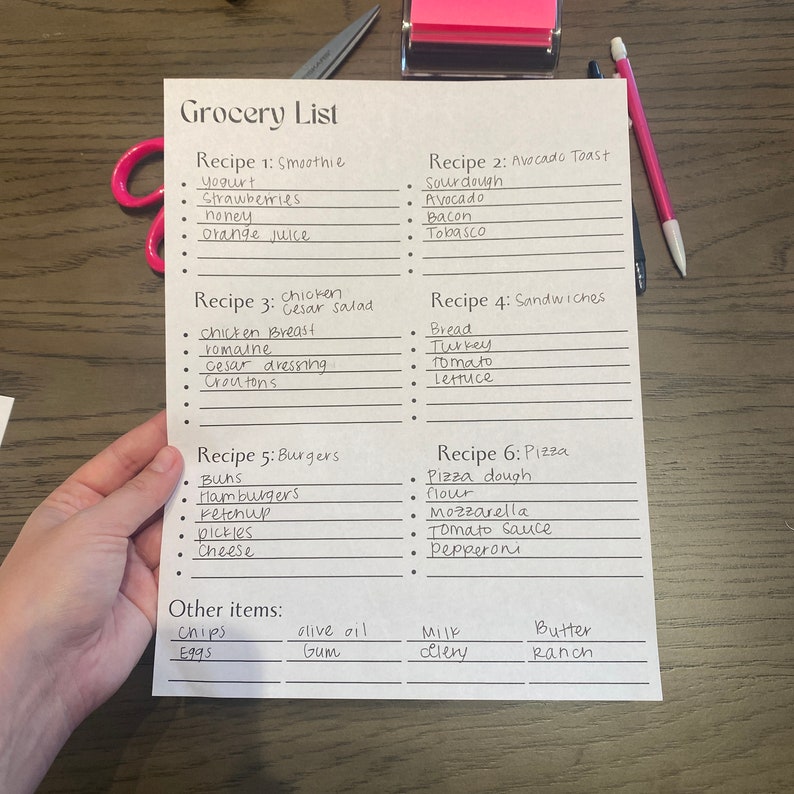 Grocery List
Recipe 1: Smoothie
yogurt
Strawberries
honey
orange juice
Recipe 2: Avocado Toast
Sourdough
Avocado
Bacon
Tobasco
Recipe 3: chicken
cesar salad
chicken Breast
romaine
cesar dressing
Croutons
Recipe 4: Sandwiches
Bread
Turkey
Tomato
Lettuce
Recipe 5: Burgers
Buns
Hamburgers
Ketchup
pickles
Cheese
Recipe 6: Pizza
Pizza dough
flour
Mozzarella
Tomato Sauce
Pepperoni
Other items:
Chips olive oil Milk Butter
Eggs Gum celery Ranch